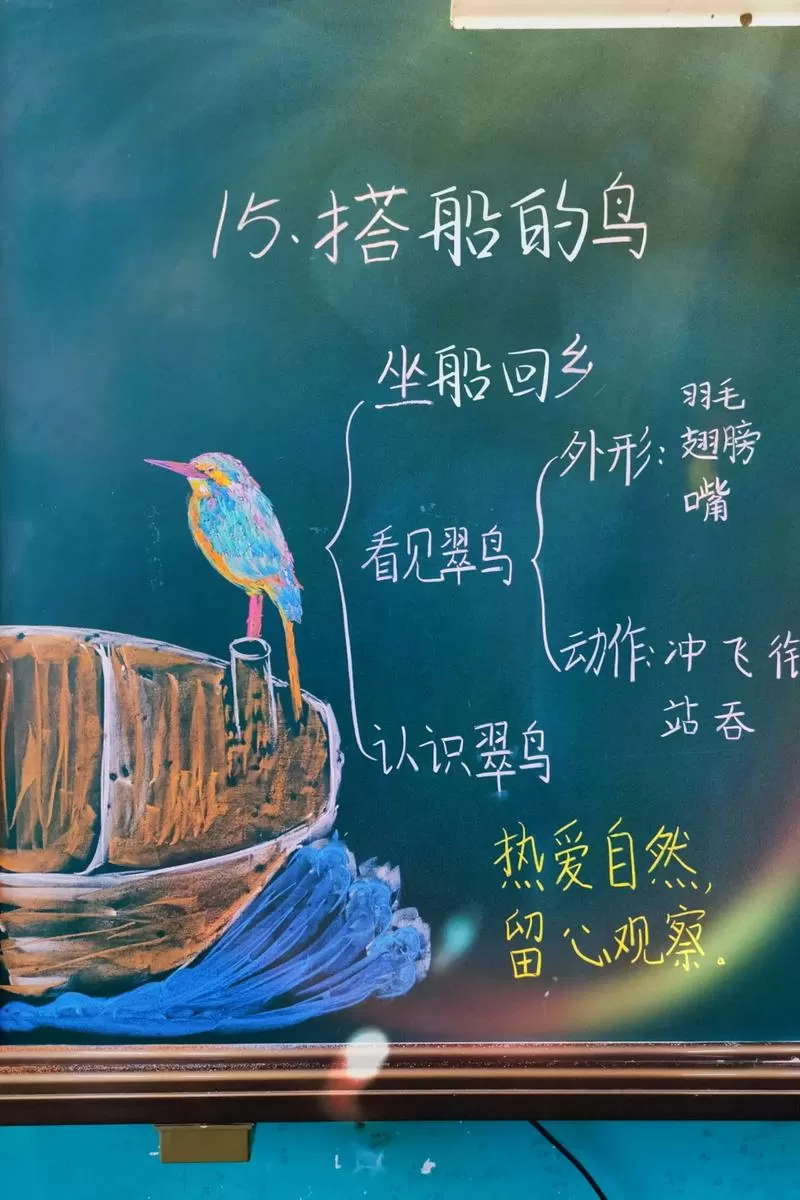 15、搭船的鸟
坐船回乡
看见翠鸟
外形：羽毛
翅膀
嘴
动作：冲 飞 衔
站 吞
认识翠鸟
热爱自然，
留心观察。